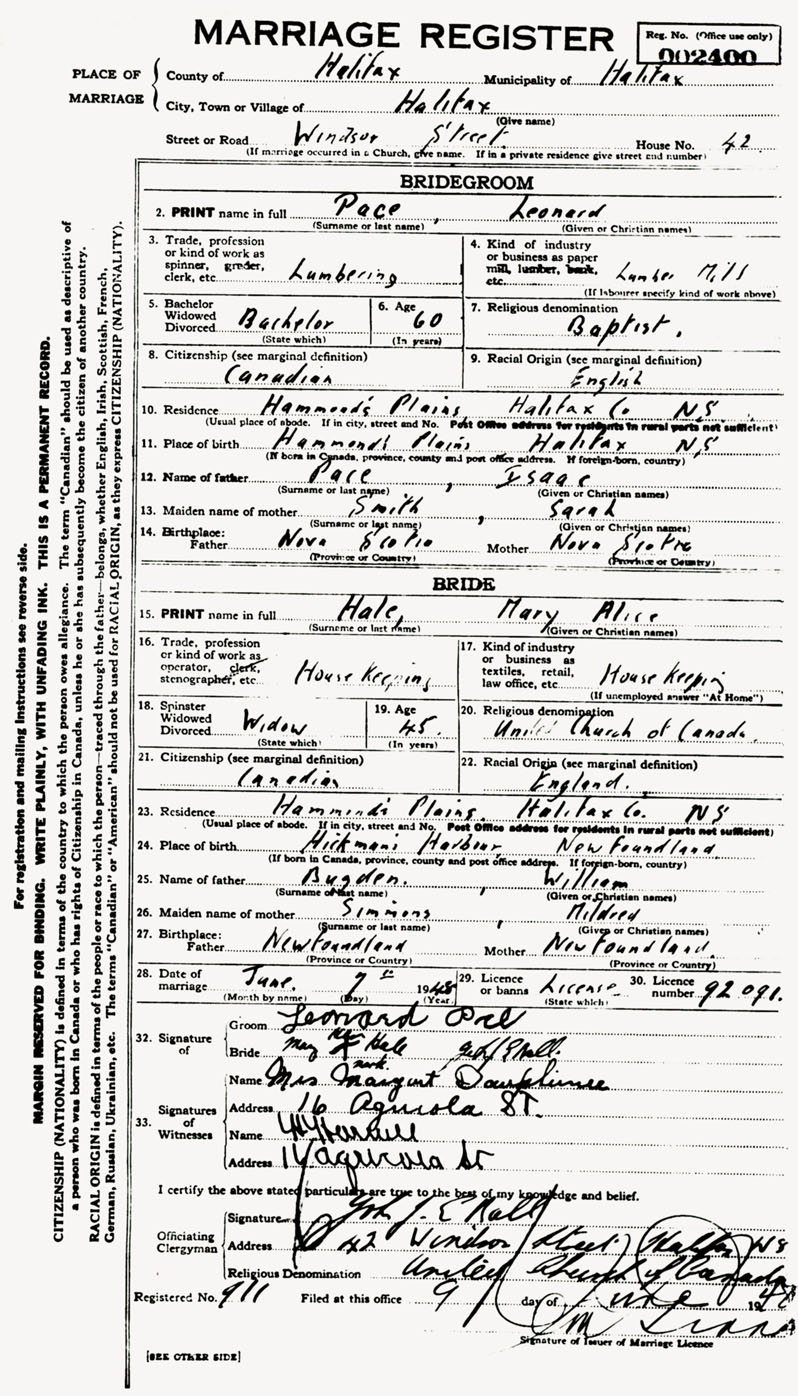 MARRIAGE REGISTER
Reg. No. (Office use only)
002400
PLACE OF MARRIAGE
County of Halifax Municipality of Halifax
City, Town or Village of Halifax
(Give name)
Street or Road Windsor Street House No. 42
(If marriage occurred in a Church, give name. If in a private residence give street and number)
BRIDEGROOM
2. PRINT name in full Pace, Leonard
(Surname or last name) (Given or Christian names)
3. Trade, profession or kind of work as spinner, grader, clerk, etc. Lumbering
4. Kind of industry or business as paper mill, lumber, bank, etc. Lumber Mills
(If labourer specify kind of work above)
5. Bachelor Widowed Divorced Bachelor
(State which)
6. Age 60
(In years)
7. Religious denomination
Baptist.
8. Citizenship (see marginal definition)
Canadian
9. Racial Origin (see marginal definition)
English
10. Residence Hammond's Plains, Halifax Co NS
(Usual place of abode. If in city, street and No. Post Office address for residents in rural parts not sufficient)
11. Place of birth Hammond's Plains Halifax NS
(If born in Canada, province, county and post office address. If foreign-born, country)
12. Name of father Pace, Isaac
(Surname or last name) (Given or Christian names)
13. Maiden name of mother Smith, Sarah
(Surname or last name) (Given or Christian names)
14. Birthplace:
Father Nova Scotia Mother Nova Scotia
(Province or Country) (Province or Country)
BRIDE
15. PRINT name in full Hale, Mary Alice
(Surname or last name) (Given or Christian names)
16. Trade, profession or kind of work as operator, clerk, stenographer, etc. House Keeping
17. Kind of industry or business as textiles, retail, law office, etc. House Keeping
(If unemployed answer "At Home")
18. Spinster Widowed Divorced Widow
(State which)
19. Age 45.
(In years)
20. Religious denomination
United Church of Canada.
21. Citizenship (see marginal definition)
Canadian
22. Racial Origin (see marginal definition)
England.
23. Residence Hammond's Plains, Halifax Co. NS
(Usual place of abode. If in city, street and No. Post Office address for residents in rural parts not sufficient)
24. Place of birth Hickman's Harbour, Newfoundland
(If born in Canada, province, county and post office address. If foreign-born, country)
25. Name of father Bugden, William
(Surname or last name) (Given or Christian names)
26. Maiden name of mother Simmons, Mildred
(Surname or last name) (Given or Christian names)
27. Birthplace:
Father Newfoundland Mother Newfoundland.
(Province or Country) (Province or Country)
28. Date of marriage June 9th 1948
(Month by name) (Day) (Year)
29. Licence or banns License
(State which)
30. Licence number 92091.
32. Signature of
Groom Leonard Pace
Bride Mary Hale
her
mark
33. Signatures of Witnesses
Name Mrs Margaret Dauphinee
Address 16 Agricola ST.
Name
Address Agricola St
I certify the above stated particulars are true to the best of my knowledge and belief.
Officiating Clergyman
Signature
Address 42 Windsor Street, Halifax NS
Religious Denomination United Church of Canada
Registered No. 911 Filed at this office 9 day of June 1948
Signature of Issuer of Marriage Licence
[SEE OTHER SIDE]
For registration and mailing instructions see reverse side.
MARGIN RESERVED FOR BINDING. WRITE PLAINLY, WITH UNFADING INK. THIS IS A PERMANENT RECORD.
CITIZENSHIP (NATIONALITY) is defined in terms of the country to which the person owes allegiance. The term "Canadian" should be used as descriptive of
a person who was born in Canada or who has rights of Citizenship in Canada, unless he or she has subsequently become the citizen of another country.
RACIAL ORIGIN is defined in terms of the people or race to which the person—traced through the father—belongs, whether English, Irish, Scottish, French,
German, Russian, Ukrainian, etc. The terms "Canadian" or "American" should not be used for RACIAL ORIGIN, as they express CITIZENSHIP (NATIONALITY).